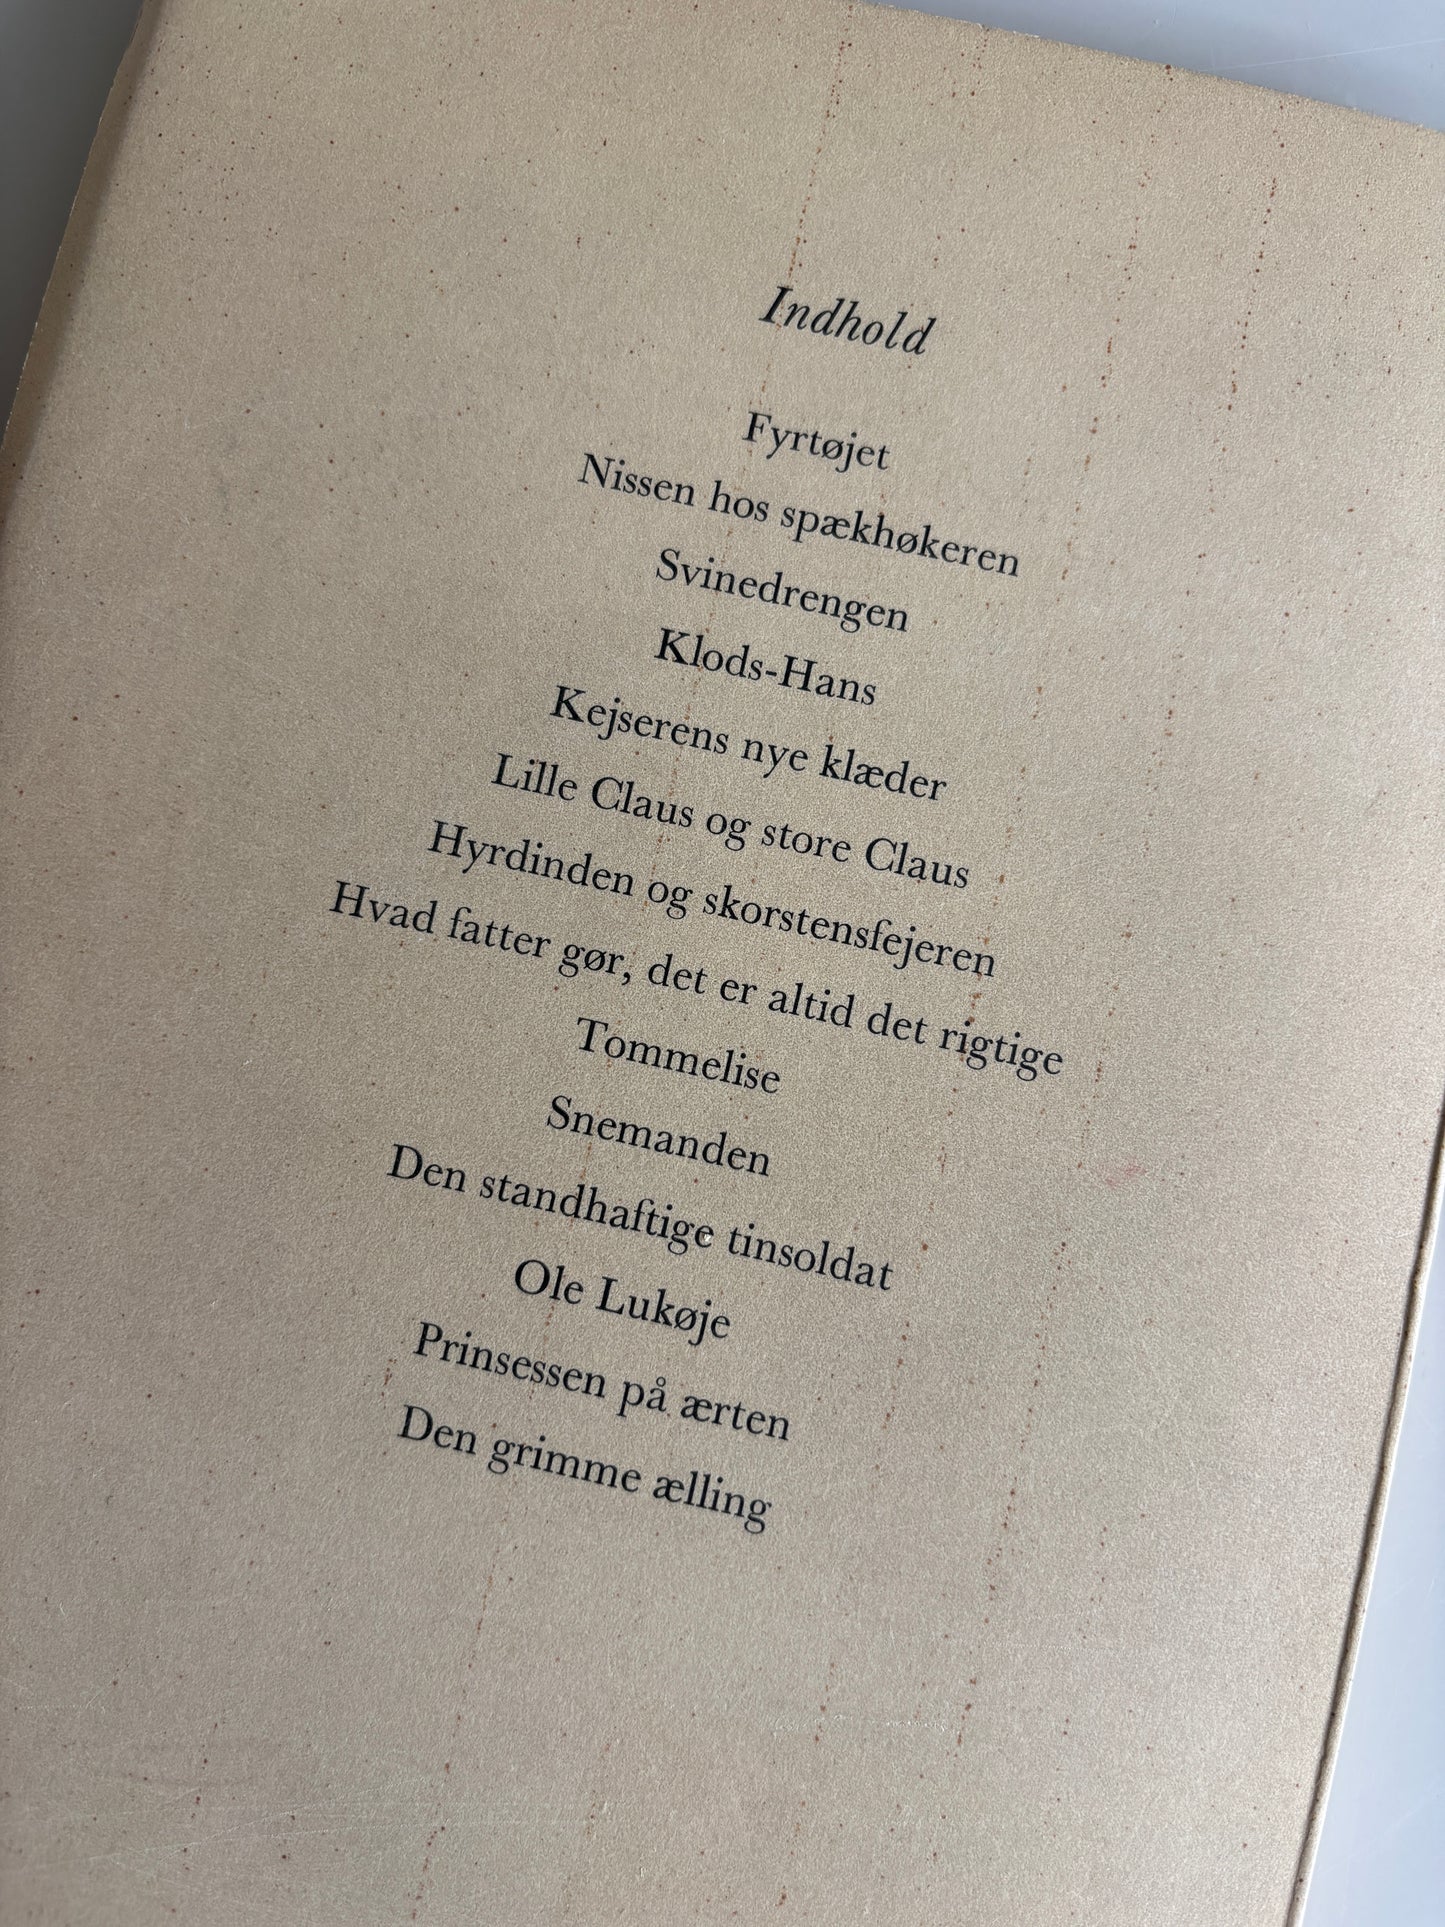 Indhold
Fyrtøjet
Nissen hos spækhøkeren
Svinedrengen
Klods-Hans
Kejserens nye klæder
Lille Claus og store Claus
Hyrdinden og skorstensfejeren
Hvad fatter gør, det er altid det rigtige
Tommelise
Snemanden
Den standhaftige tinsoldat
Ole Lukøje
Prinsessen på ærten
Den grimme ælling